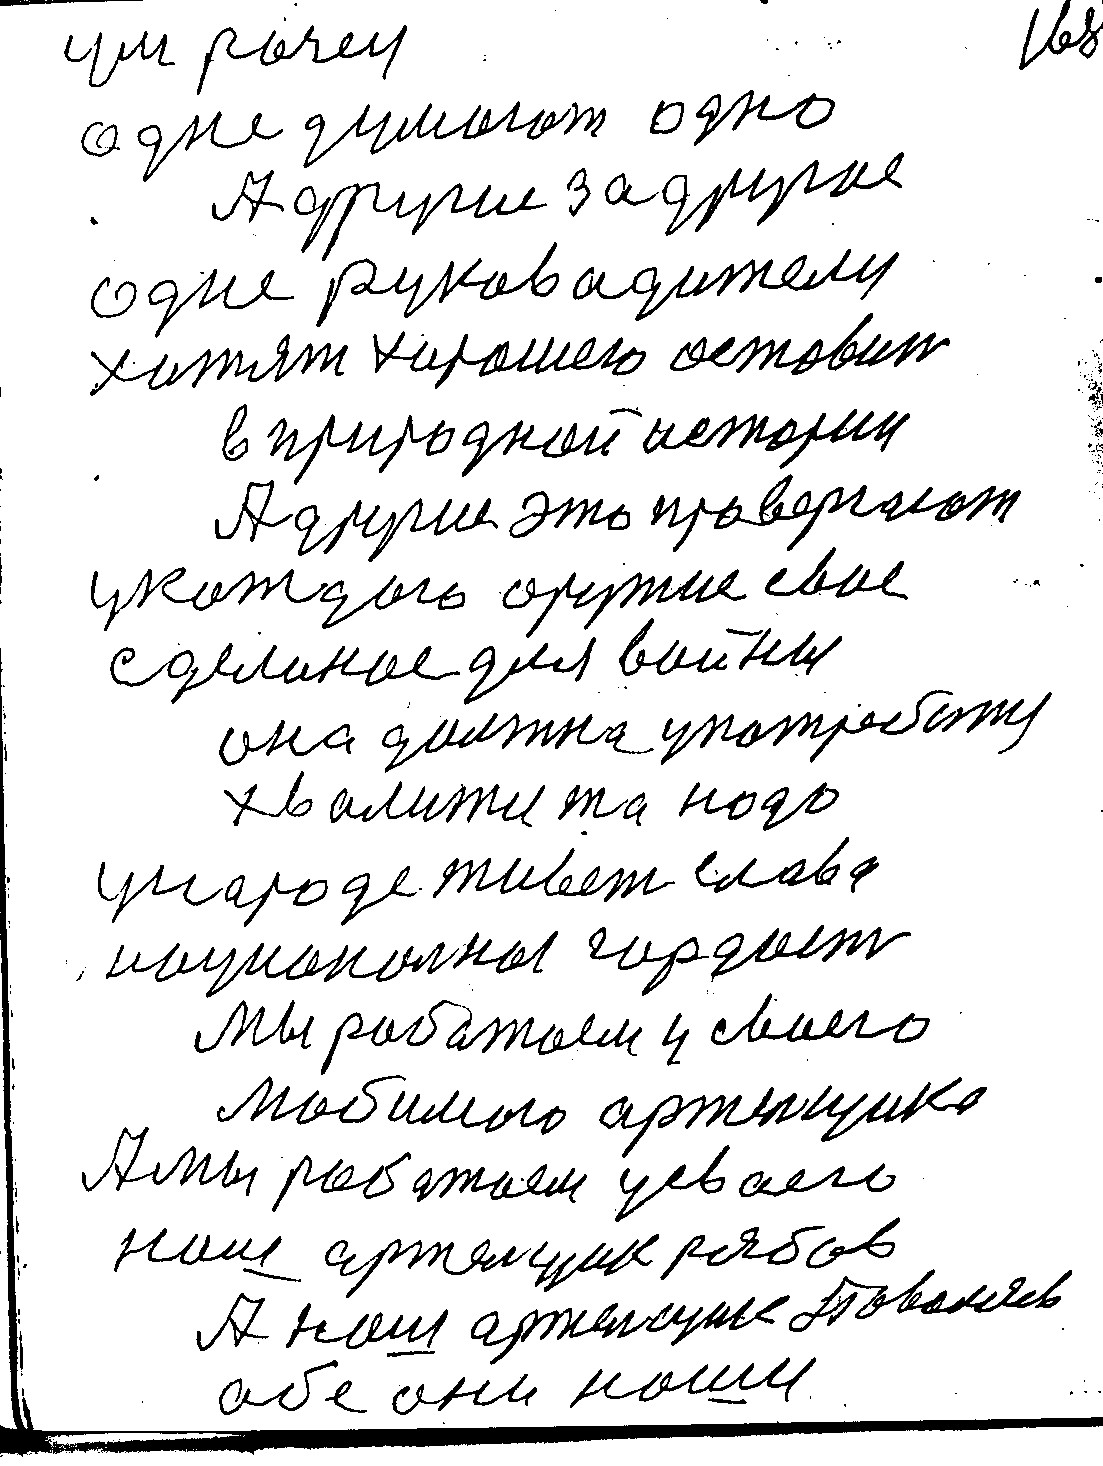 168
ум рачеи
одне думают одно
А другие за другое
одне руководители
хотят хорошего оставит
в природной истории
А другие это провергают
укождого оружие свое
сделоное для войны
она должна употребятц
хвалитце та нодо
у народе живет слава
national гордост
Мы работаем у своего
любимого артелщика
А мы работаем у сваего
наш артелщик рябов
А наш артелщик Поваляев
обе они наши